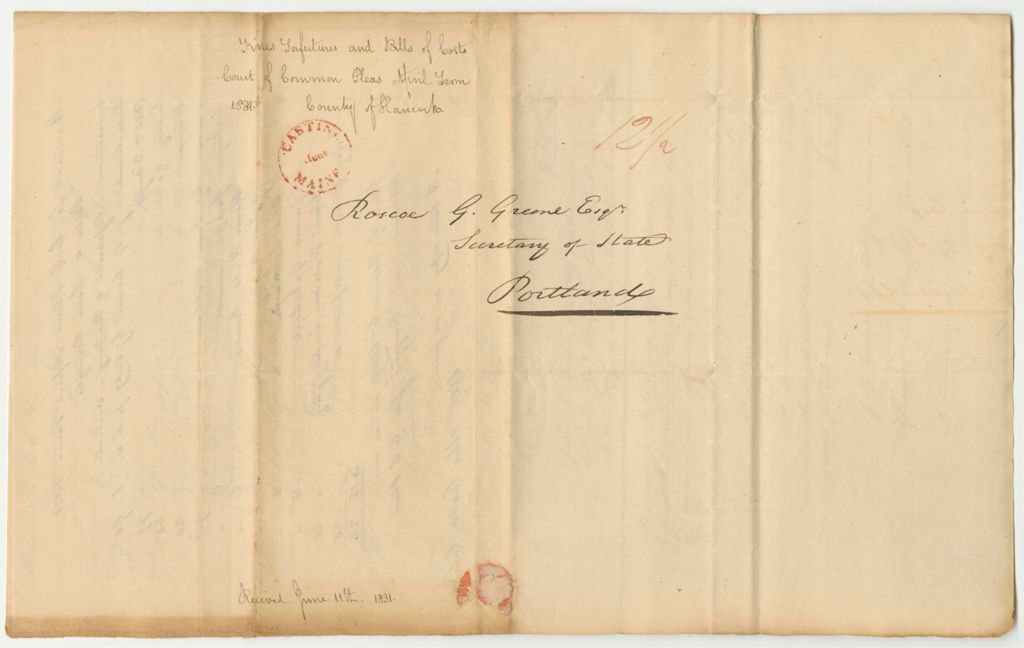 Fines Forfeitures and Bills of Costs
Court of Common Pleas April Term
1831. County of Hancock.
CASTINE
June
MAINE
12 1/2
Roscoe G. Greene Esqr.
Secretary of State
Portland
Received June 11th. 1831.